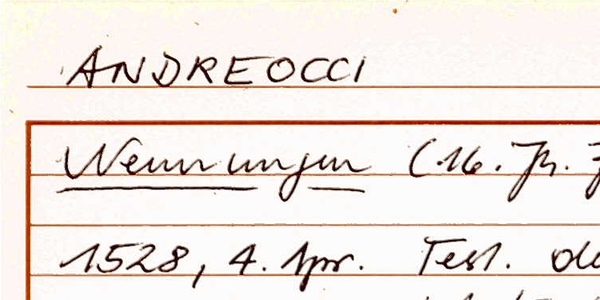 ANDREOCCI
Nennungen (16. Jh.
1528, 4. Apr. Test.